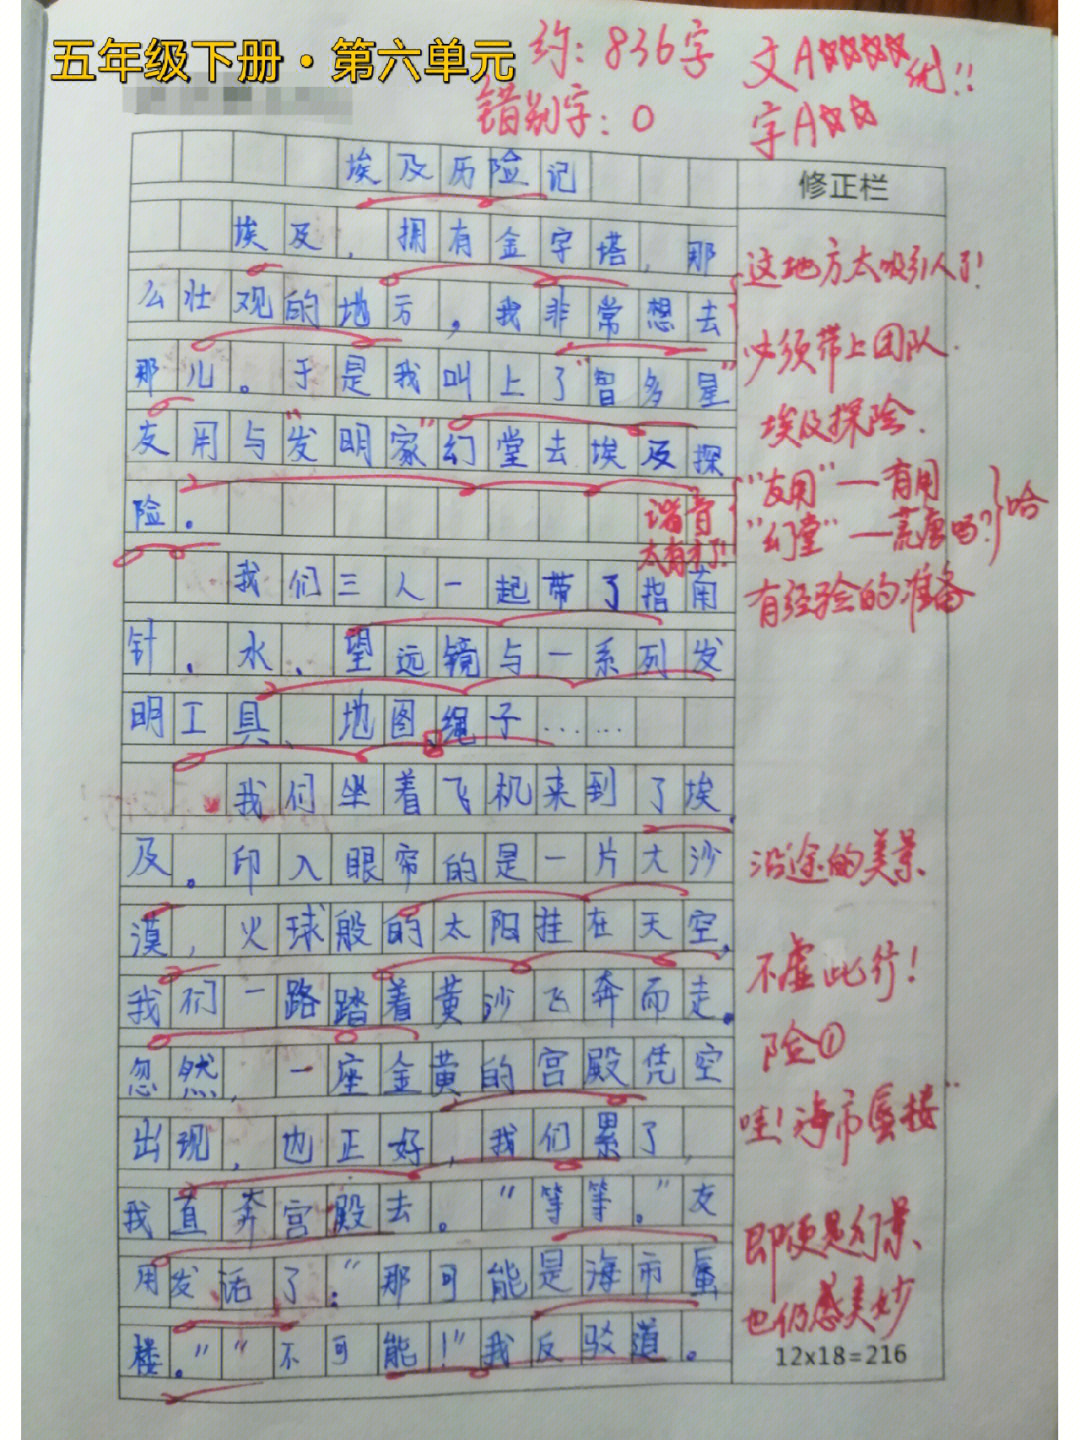 五年级下册·第六单元
约：836字
错别字：0
文A☆☆☆☆优!!
字A☆☆
埃及历险记
修正栏
埃及，拥有金字塔，那
么壮观的地方，我非常想去
那儿。于是我叫上了"智多星"
友用与"发明家"幻堂去埃及探
险。
我们三人一起带了指南
针、水、望远镜与一系列发
明工具、地图、绳子……
我们坐着飞机来到了埃
及。印入眼帘的是一片大沙
漠，火球般的太阳挂在天空，
我们一路踏着黄沙飞奔而走。
忽然，一座金黄的宫殿凭空
出现，也正好，我们累了，
我直奔宫殿去。"等等。"友
用发话了："那可能是海市蜃
楼。""不可能！"我反驳道。
这地方太吸引人了!
必须带上团队.
埃及探险.
谐音
太有才了!
"友用"一有用
"幻堂"一荒唐吗?
哈
有经验的准备
沿途的美景
不虚此行!
险①
哇!海市蜃楼
即便是幻景
也仍感美妙
12x18=216